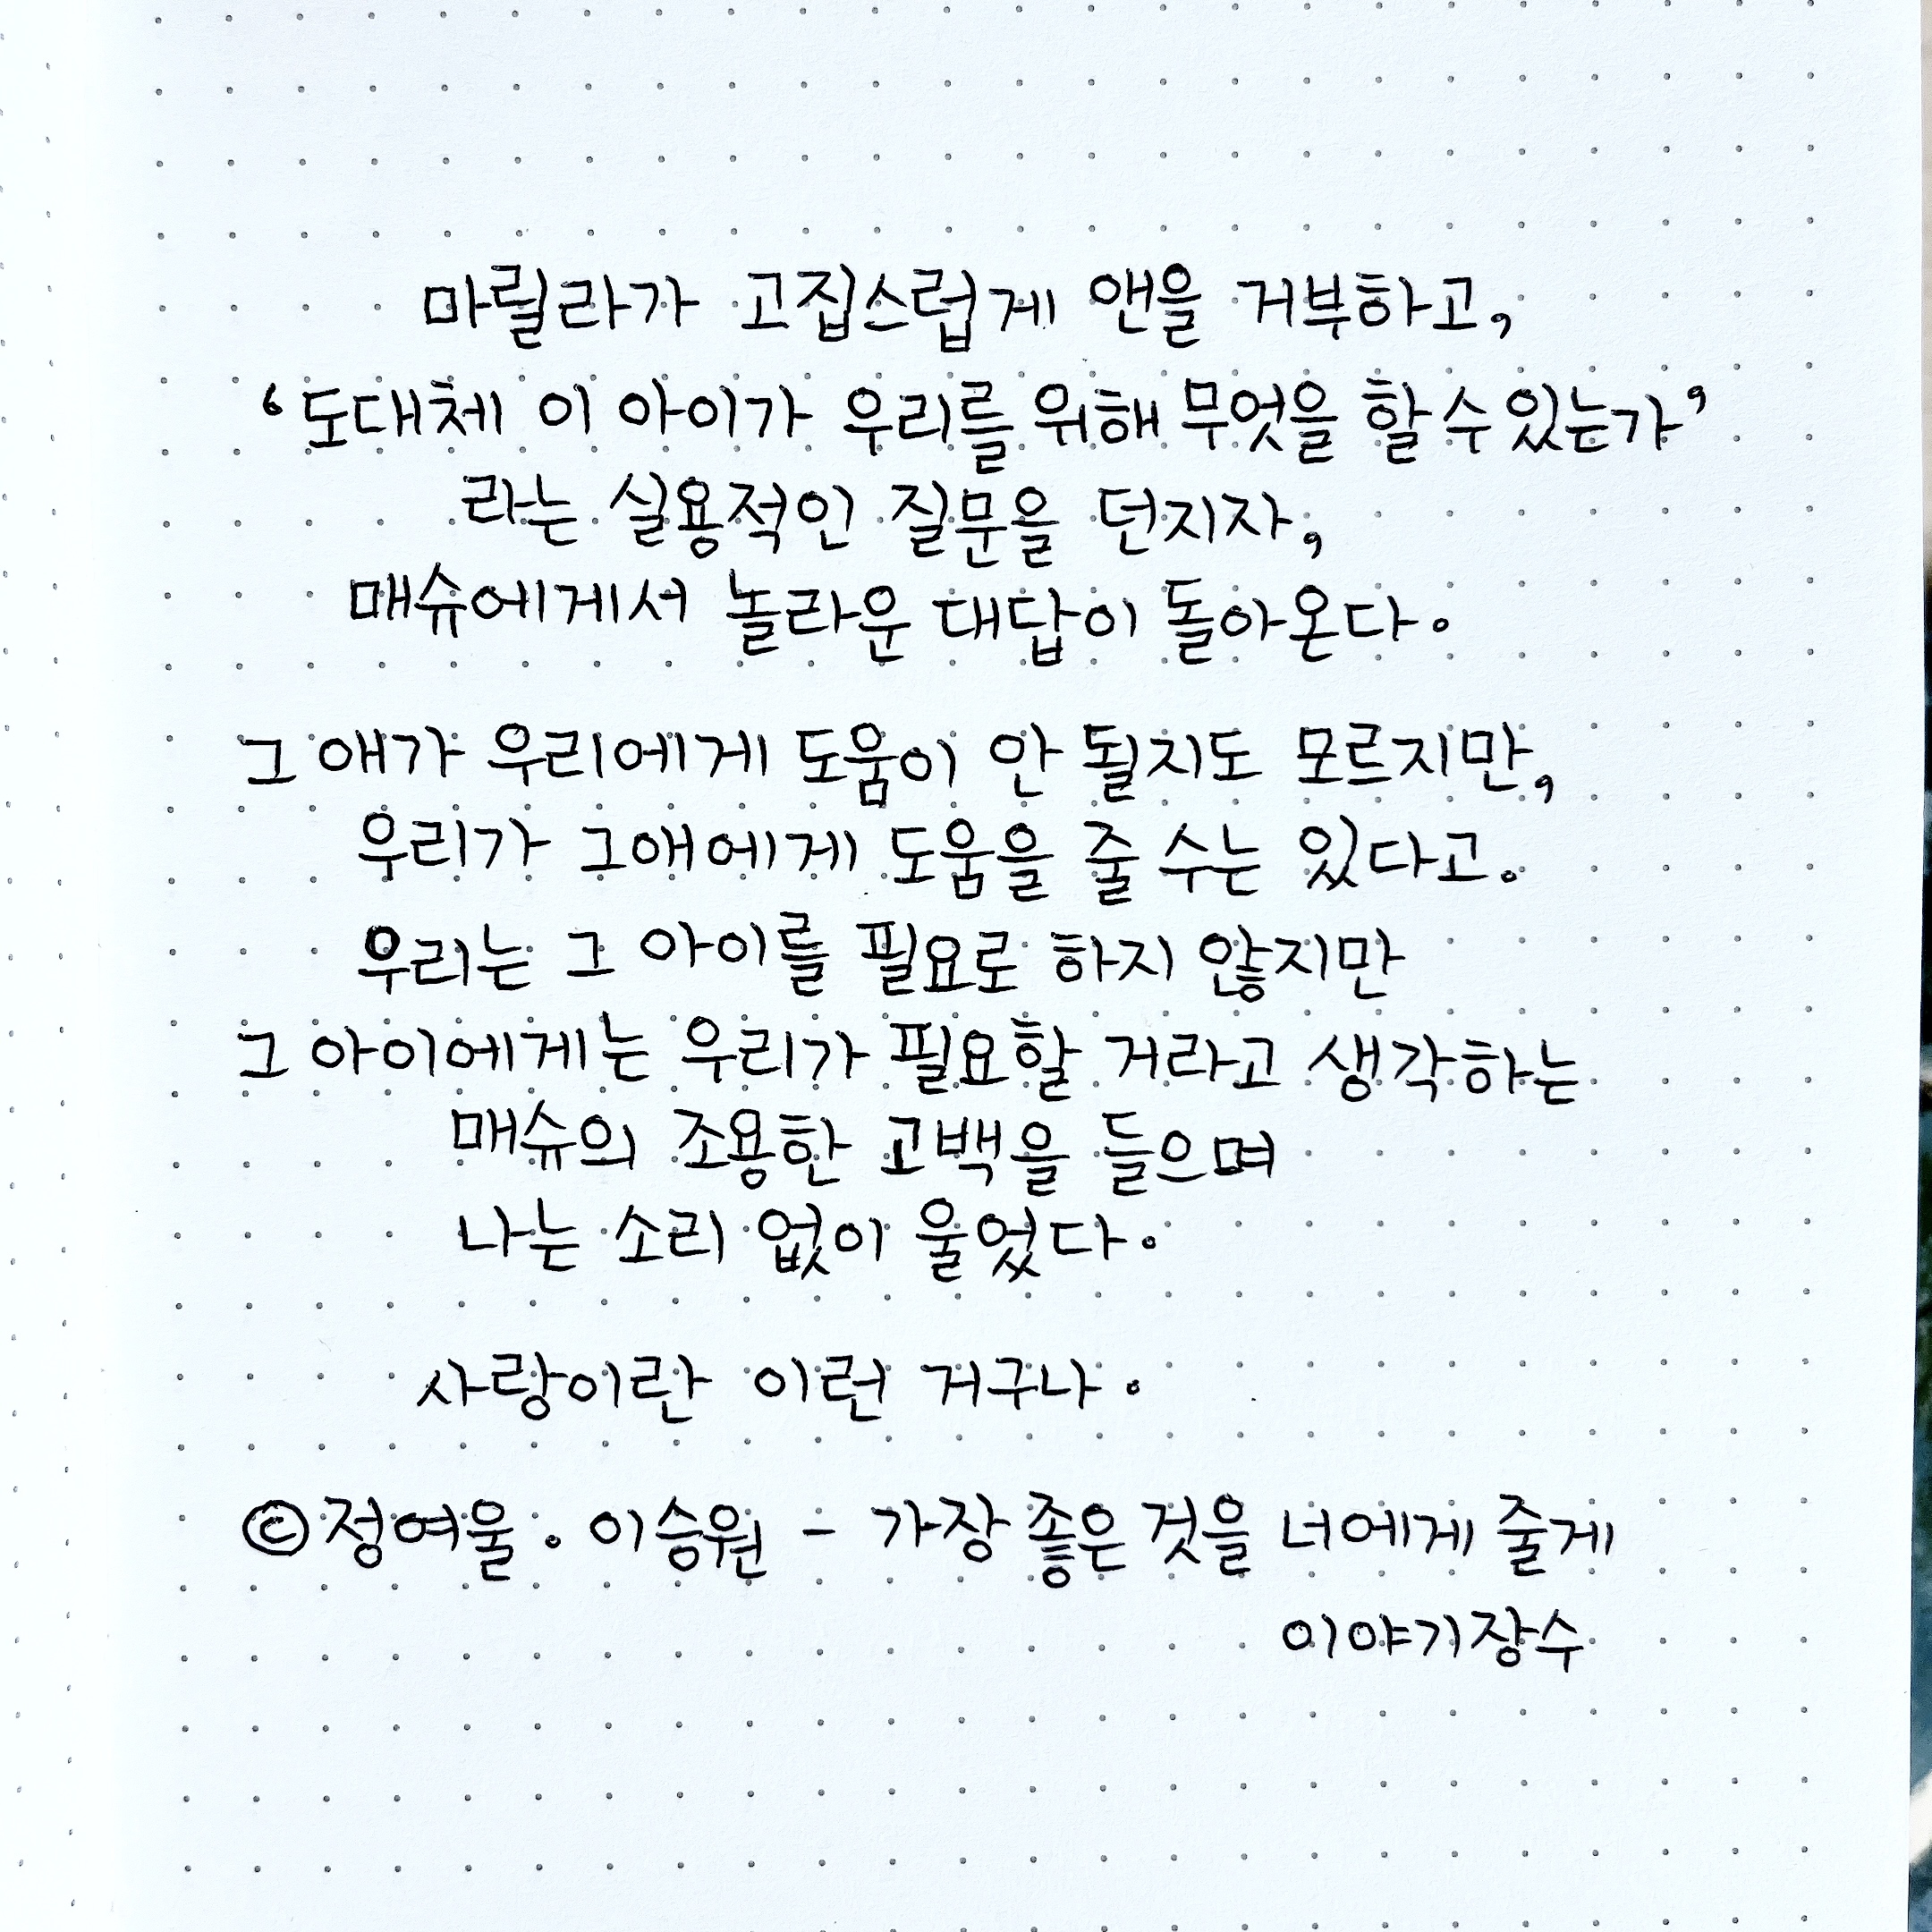 마릴라가 고집스럽게 앤을 거부하고,
‘도대체 이 아이가 우리를 위해 무엇을 할 수 있는가’
라는 실용적인 질문을 던지자,
매슈에게서 놀라운 대답이 돌아온다.
그 애가 우리에게 도움이 안 될지도 모르지만,
우리가 그애에게 도움을 줄 수는 있다고.
우리는 그 아이를 필요로 하지 않지만
그 아이에게는 우리가 필요할 거라고 생각하는
매슈의 조용한 고백을 들으며
나는 소리 없이 울었다.
사랑이란 이런 거구나.
©정여울. 이승원 - 가장 좋은 것을 너에게 줄게
이야기장수